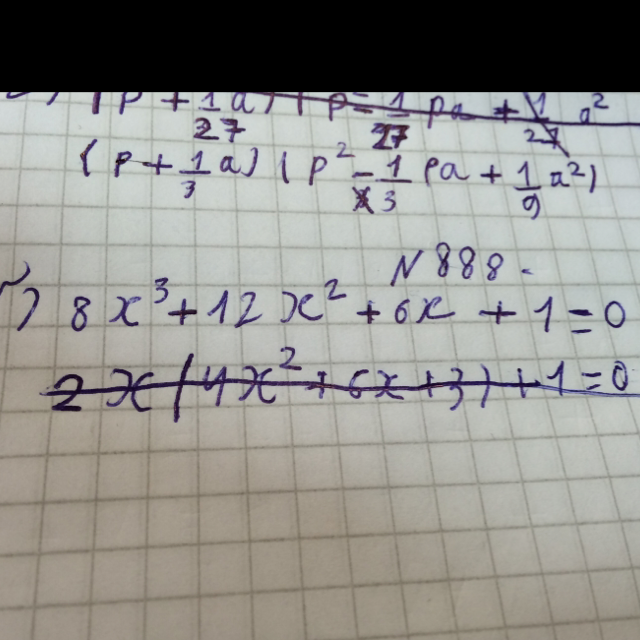 (p + 1/27 a) (p² - 1/27 pa + 1/27 a²
(p + 1/3 a) (p² - 1/3 pa + 1/9 a²)
N 888.
) 8x³ + 12x² + 6x + 1 = 0
2x(4x² + 6x + 3) + 1 = 0